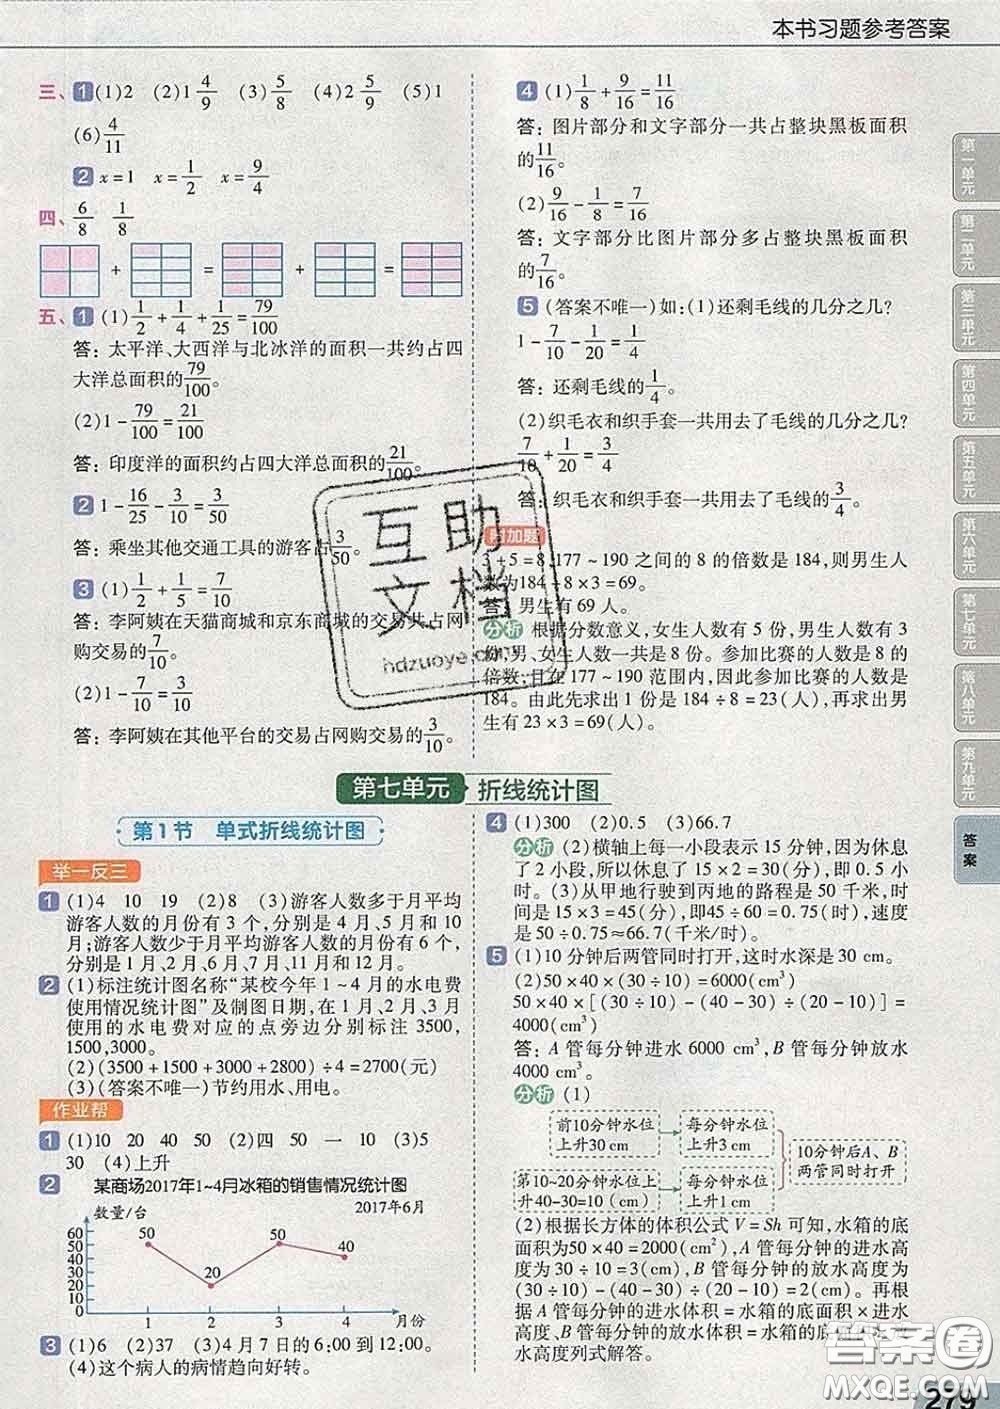 本书习题参考答案
三、1 (1)2 (2)1 4/9 (3)5/8 (4)2 5/9 (5)1
(6)4/11
2 x=1 x=1/2 x=9/4
四、6/8 1/8
+ = + =
五、1 (1)1/2+1/4+1/25=79/100
答:太平洋、大西洋与北冰洋的面积一共约占四
大洋总面积的79/100。
(2)1-79/100=21/100
答:印度洋的面积约占四大洋总面积的21/100。
2 1-16/25-3/10=3/50
答:乘坐其他交通工具的游客占3/50。
3 (1)1/2+1/5=7/10
答:李阿姨在天猫商城和京东商城的交易共占网
购交易的7/10。
(2)1-7/10=3/10
答:李阿姨在其他平台的交易占网购交易的3/10。
4 (1)1/8+9/16=11/16
答:图片部分和文字部分一共占整块黑板面积
的11/16。
(2)9/16-1/8=7/16
答:文字部分比图片部分多占整块黑板面积
的7/16。
5 (答案不唯一)如:(1)还剩毛线的几分之几?
1-7/10-1/20=1/4
答:还剩毛线的1/4。
(2)织毛衣和织手套一共用去了毛线的几分之几?
7/10+1/20=3/4
答:织毛衣和织手套一共用去了毛线的3/4。
附加题
3+5=8,177~190之间的8的倍数是184,则男生人
数为184÷8×3=69。
答:男生有69人。
分析 根据分数意义,女生人数有5份,男生人数有3
份,男、女生人数一共是8份。参加比赛的人数是8的
倍数,且在177~190范围内,因此参加比赛的人数是
184。由此先求出1份是184÷8=23(人),所以男
生有23×3=69(人)。
第七单元 折线统计图
第1节 单式折线统计图
举一反三
1 (1)4 10 19 (2)8 (3)游客人数多于月平均
游客人数的月份有3个,分别是4月、5月和10
月;游客人数少于月平均游客人数的月份有6个,
分别是1月、2月、3月、7月、11月和12月。
2 (1)标注统计图名称“某校今年1~4月的水电费
使用情况统计图”及制图日期,在1月、2月、3月
使用的水电费对应的点旁边分别标注3500,
1500,3000。
(2)(3500+1500+3000+2800)÷4=2700(元)
(3)(答案不唯一)节约用水、用电。
作业帮
1 (1)10 20 40 50 (2)四 50 一 10 (3)5
30 (4)上升
2 某商场2017年1~4月冰箱的销售情况统计图
数量/台 2017年6月
60
50
40
30
20
10
0
50 20 50 40
1 2 3 4 月份
3 (1)6 (2)37 (3)4月7日的6:00到12:00。
(4)这个病人的病情趋向好转。
4 (1)300 (2)0.5 (3)66.7
分析 (2)横轴上每一小段表示15分钟,因为休息
了2小段,所以休息了15×2=30(分),即0.5小
时。(3)从甲地行驶到丙地的路程是50千米,时
间是15×3=45(分),即45÷60=0.75(时),速度
是50÷0.75≈66.7(千米/时)。
5 (1)10分钟后两管同时打开,这时水深是30 cm。
(2)50×40×(30÷10)=6000(cm³)
50×40×[(30÷10)-(40-30)÷(20-10)]=
4000(cm³)
答:A管每分钟进水6000 cm³,B管每分钟放水
4000 cm³。
分析 (1)
前10分钟水位
上升30 cm
每分钟水位
上升3 cm
第10~20分钟水位上
升40-30=10(cm)
每分钟水位
上升1 cm
10分钟后A、B
两管同时打开
(2)根据长方体的体积公式V=Sh可知,水箱的底
面积为50×40=2000(cm²),A管每分钟的进水高
度为30÷10=3(cm),B管每分钟的放水高度为
(30÷10)-(40-30)÷(20-10)=2(cm)。再根
据A管每分钟的进水体积=水箱的底面积×进水
高度、B管每分钟的放水体积=水箱的底面积×放
水高度列式解答。
第一单元
第二单元
第三单元
第四单元
第五单元
第六单元
第七单元
第八单元
第九单元
答案
互助
文档
hdzuoye.com
答案圈
MXQE.COM
279